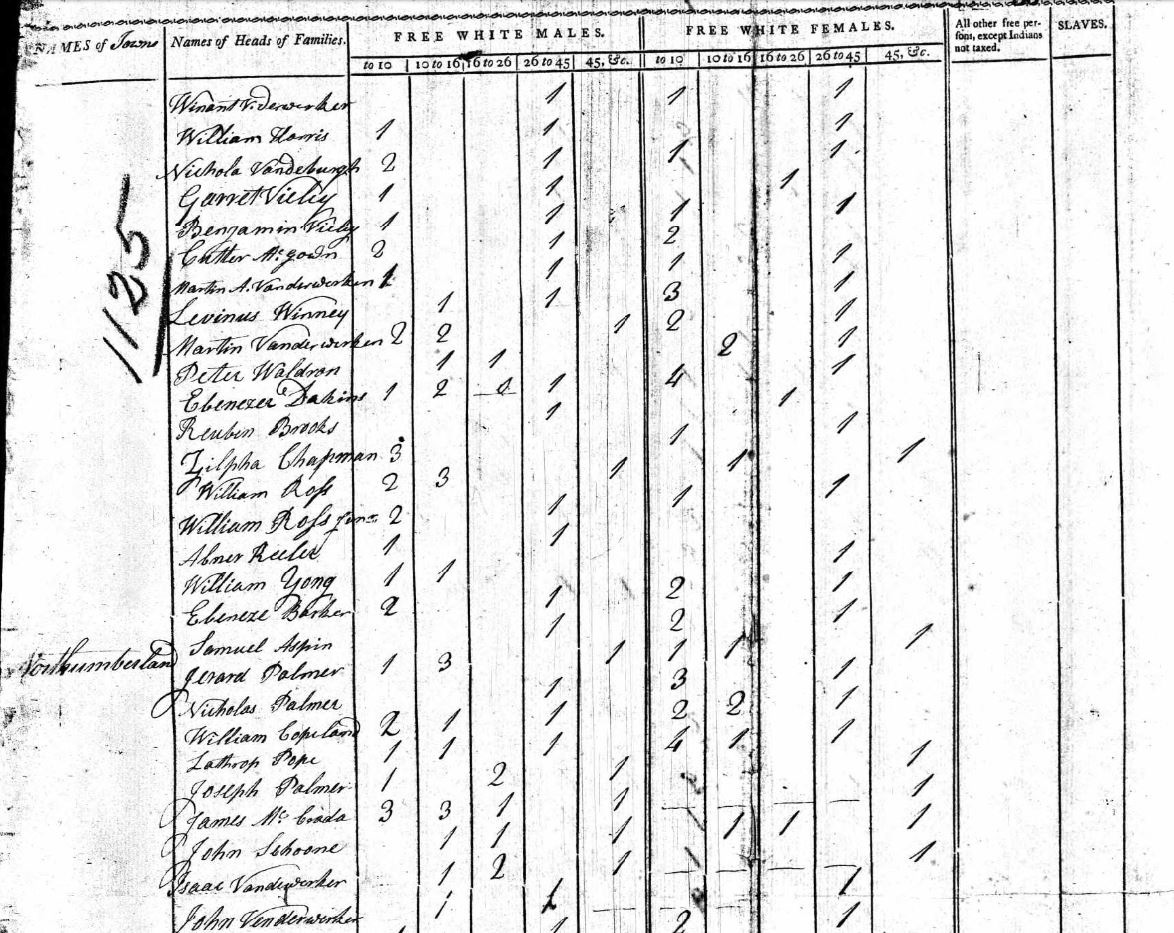 NAMES of Towns Names of Heads of Families. FREE WHITE MALES. FREE WHITE FEMALES. All other free persons, except Indians not taxed. SLAVES.
to 10 10 to 16 16 to 26 26 to 45 45, &c. to 10 10 to 16 16 to 26 26 to 45 45, &c.
Winant V.derwerker 1 1 1
William Harris 1 1 1
Nichola Vandeburgh 2 1 1 1
Garret Viely 1 1 1
Benjamin Viely 1 1 1 1
Cutter Mc gown 2 1 2
Martin A. Vanderwerken 1 1 1 1
Levinus Winney 1 1 3 1
Martin Vanderwerken 2 2 1 2 1
Peter Waldron 1 1 2 1
Ebenezer Dakins 1 2 0 1 4 1
Reuben Brooks 1 1
Zilpha Chapman 3 1 1
William Ross 2 3 1 1 1
William Ross Junr 2 1 1 1
Abner Keeler 1 1
William Yong 1 1 1
Ebeneze Barker 2 1 2 1
Samuel Aspin 1 2 1
Northumberland Jerard Palmer 1 3 1 1 1 1
Nicholas Palmer 1 3 1
William Copeland 2 1 1 2 2 1
Lathrop Pope 1 1 1 4 1 1
Joseph Palmer 1 2 1 1
James Mc Crada 3 3 1 1 1
John Schoone 1 1 1 1 1 1
Isaac Vanderwerker 1 2 1 1
John Venderwerker 1 1 1
1 1 2 1
1125